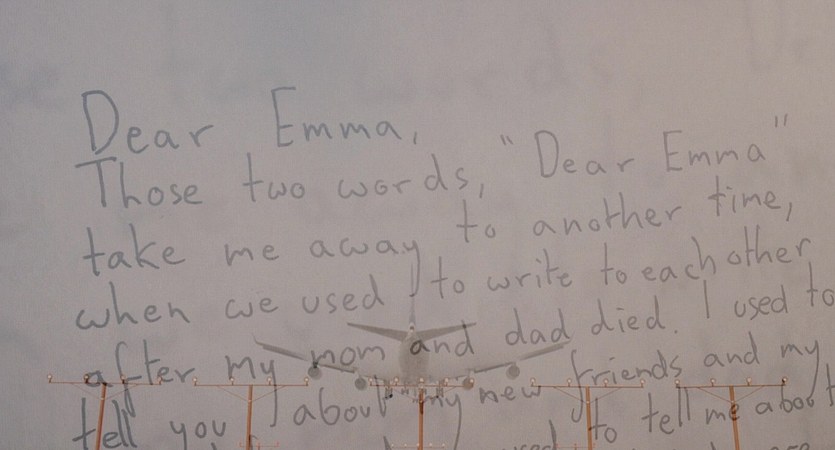 Dear Emma,
Those two words, "Dear Emma"
take me away to another time,
when we used to write to each other
after my mom and dad died. I used to
tell you about my new friends and my
to tell me about